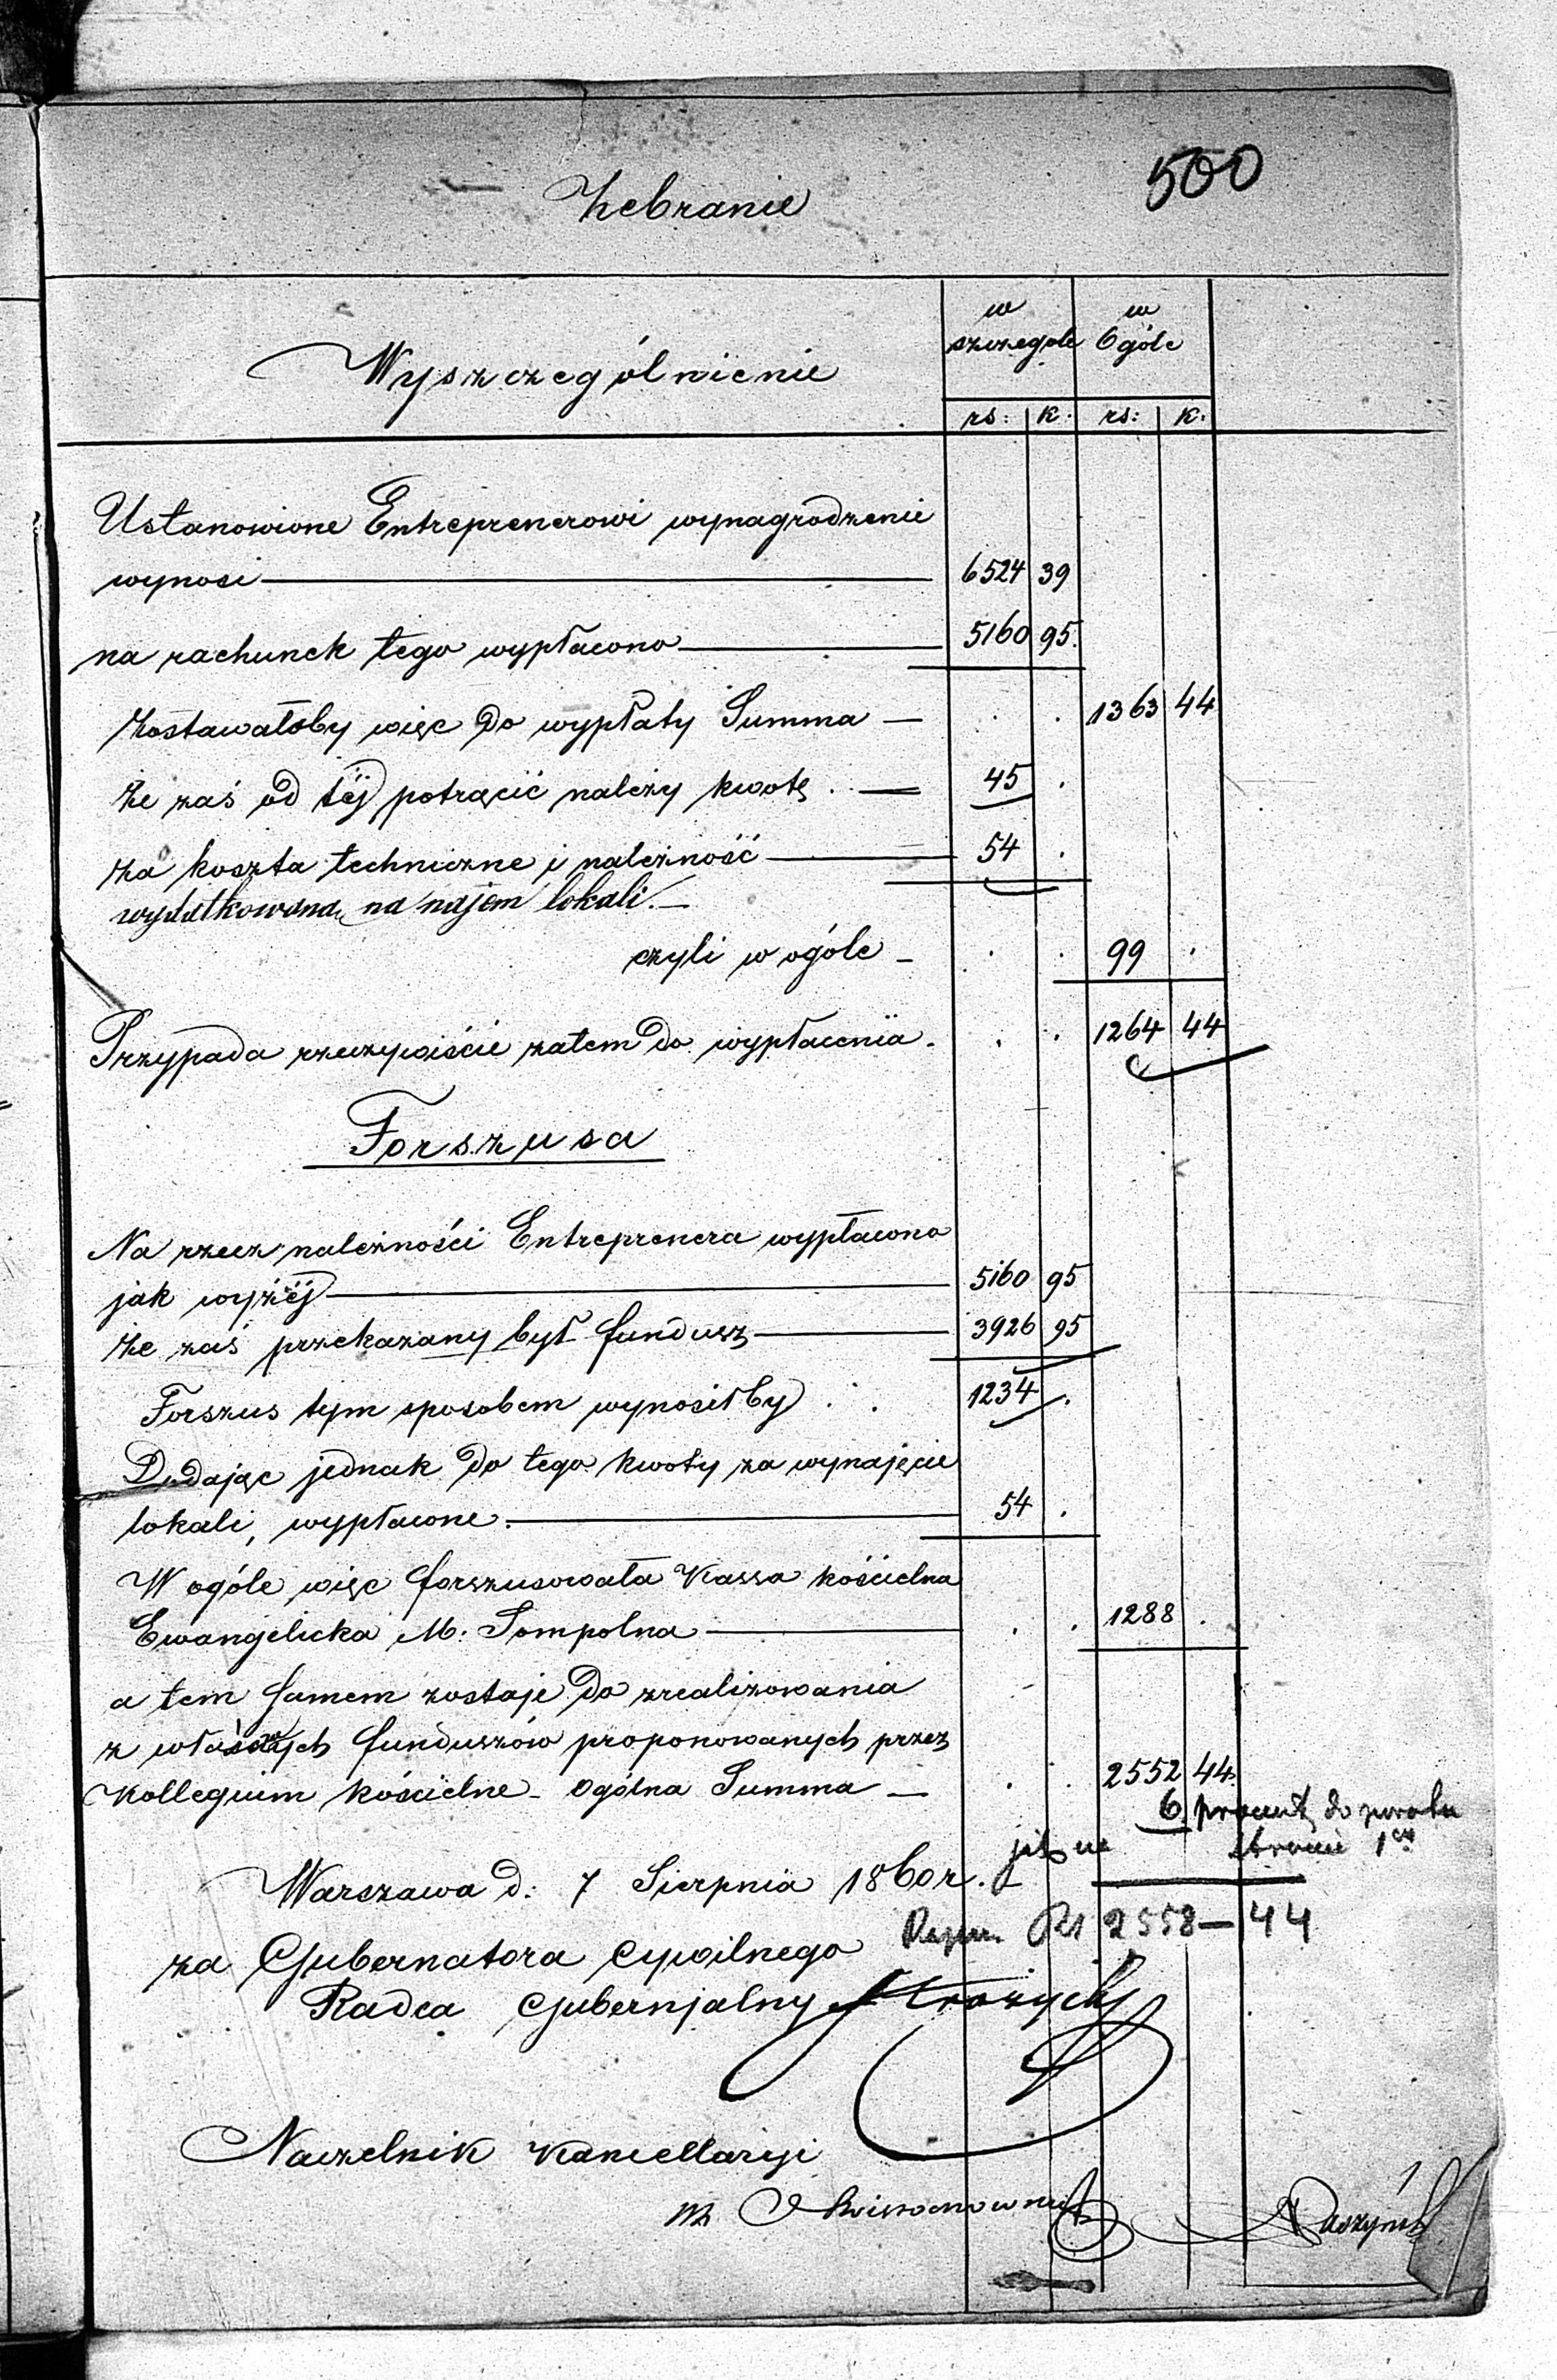 500
Zebranie
Wyszczególnienie
w szczególe
w Ogóle
rs: k. rs: k.
Ustanowione Entreprenerowi wynagrodzenie
wynosi — 6524 39
na rachunek tego wypłacono — 5160 95.
Zostawałoby więc do wypłaty Summa — . . 1363 44
Że zaś od téj potrącić należy kwotę . — 45 .
za koszta techniczne i należność — 54 .
wydatkowaną na najem lokali. —
czyli w ogóle — . . 99 .
Przypada rzeczywiście zatem do wypłacenia . . . 1264 44
Forszusa
Na rzecz należności Entreprenera wypłacono
jak wyżéj — 5160 95
Że zaś przekazany był fundusz — 3926 95
Forszus tym sposobem wynosiłby . . 1234 .
Dodając jednak do tego kwoty za wynajęcie
lokali, wypłacone. — 54 .
W ogóle więc forszusowała Kassa kościelna
Ewangelicka M. Sompolna — . . 1288 .
a tem samem zostaje do zrealizowania
z właściwych funduszów proponowanych przez
Kollegium kościelne ogólna Summa — . . 2552 44.
6 procent do zwrotu
Warszawa d: 7 Sierpnia 1860 r.
Rs 2558 — 44
za Gubernatora Cywilnego
Radca Gubernjalny
Naczelnik Kancellaryi